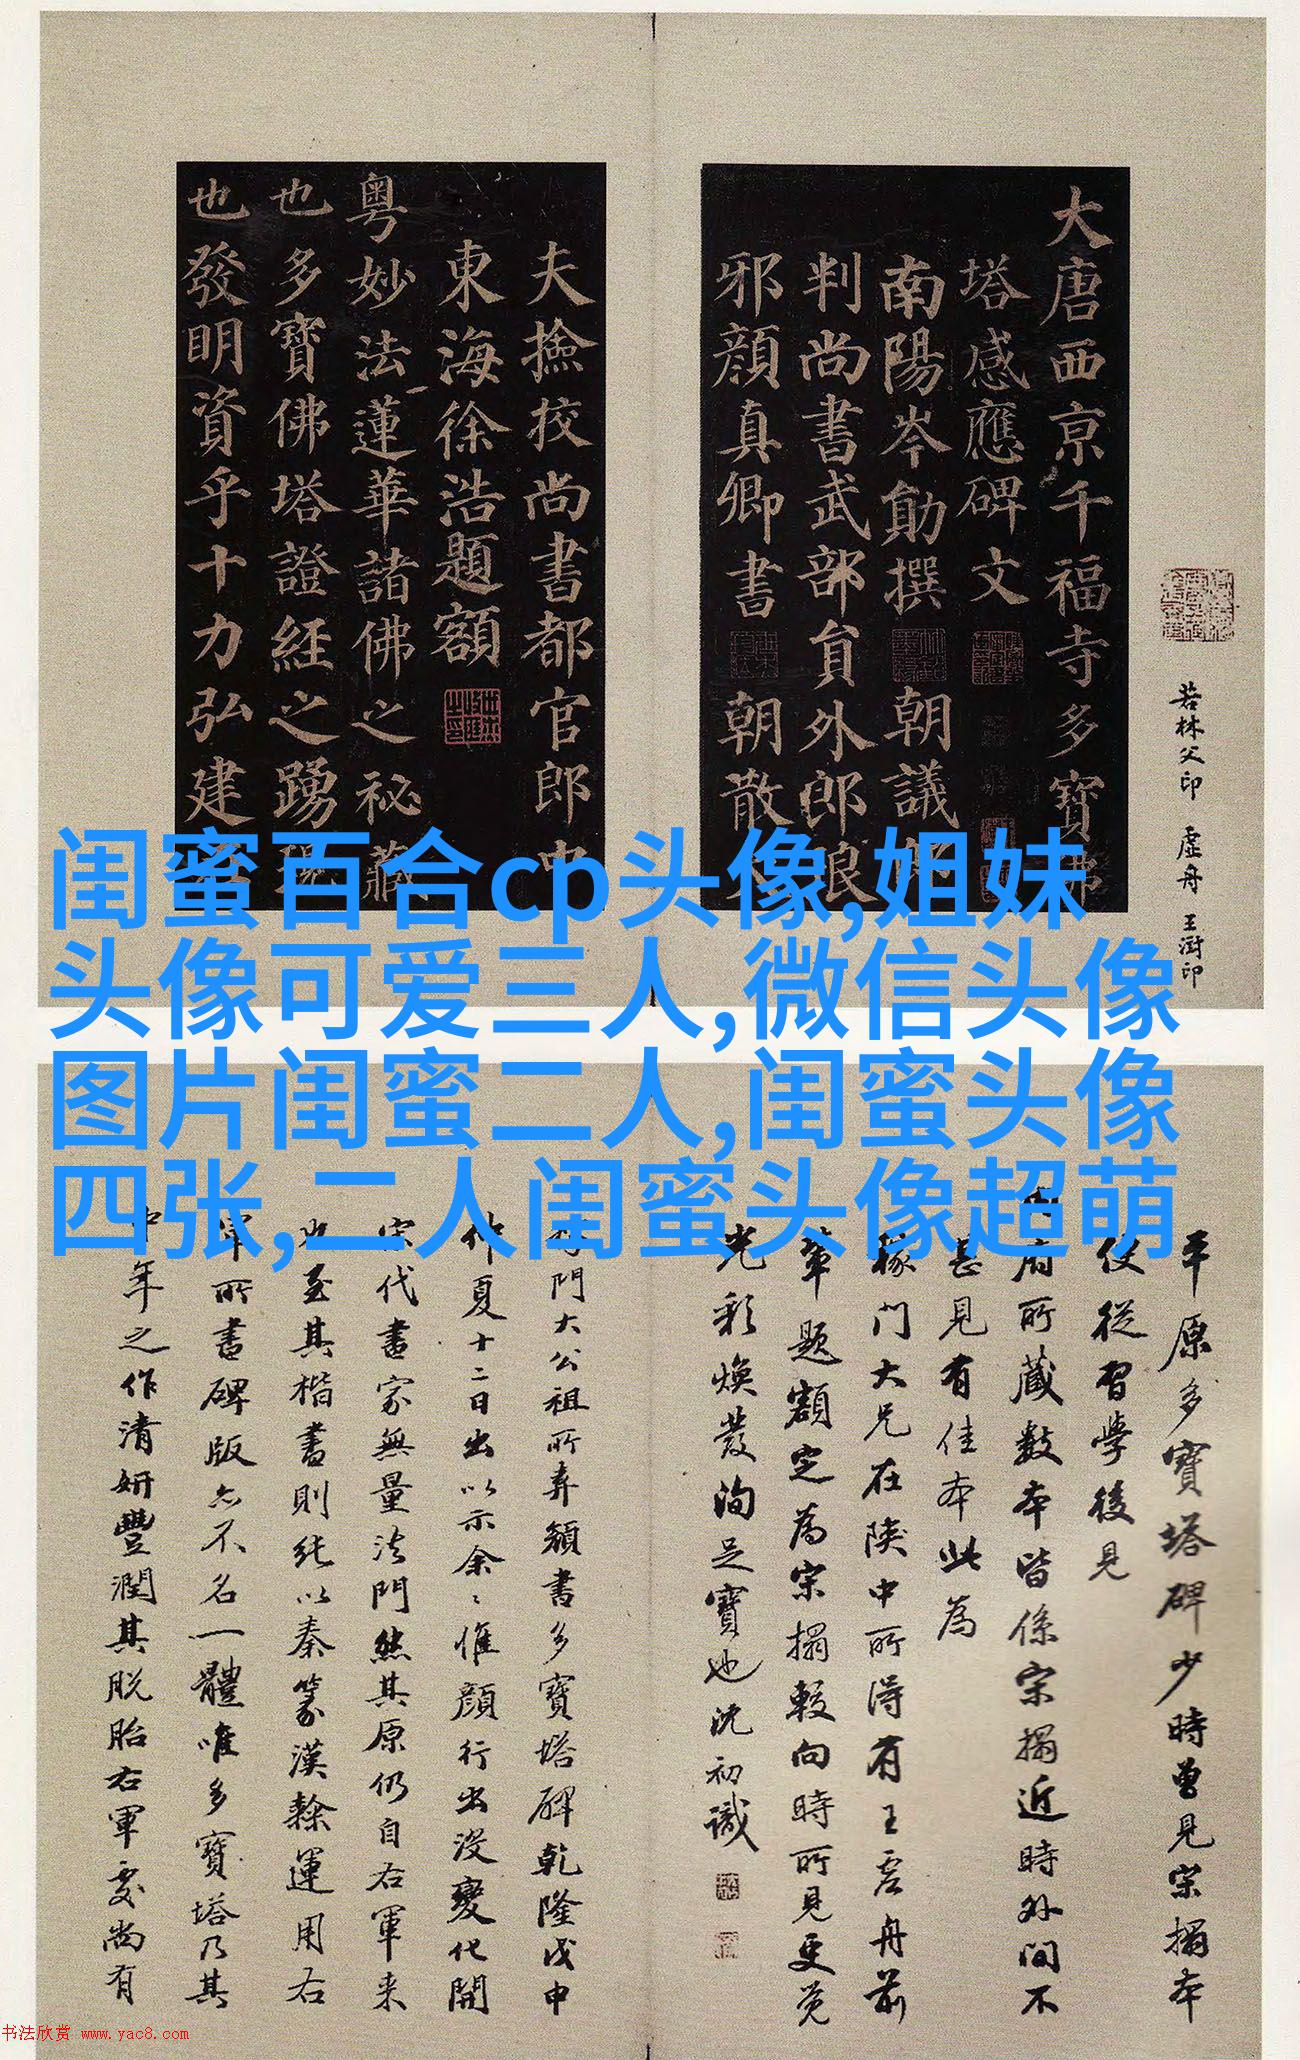 若林父印 虛舟 王澍印
大唐西京千福寺多寶佛
塔感應碑文
南陽岑勛撰 朝議
判尚書武部貟外郎琅
邪顏真卿書 朝散
夫撿挍尚書都官郎中
東海徐浩題額
粵妙法蓮華諸佛之祕藏
也多寶佛塔證經之踴現
也發明資乎十力弘建
闺蜜百合cp头像,姐妹
头像可爱三人,微信头像
图片闺蜜二人,闺蜜头像
四张,二人闺蜜头像超萌
平原多寶塔碑少時曾見宋搨本
仗從習學後見
内府所藏數本皆係宋搨近時外間不
甚見有佳本此為
稼門大兄在陝中所得有王虛舟前
輩題額定為宋搨較向時所見更覺
光彩煥發洵足寶也沈初識
門大公祖所弆顏書多寶塔碑乾隆戊申
仲夏十二日出以示余〻惟顏行出没變化開
宋代書家無量法門然其原仍自右軍来
也至其楷書則純以秦篆漢隸運用右
軍所書碑版亦不名一體唯多寶塔乃其
中年之作清妍豐潤其脱胎右軍處尚有
书法欣赏 www.yac8.com